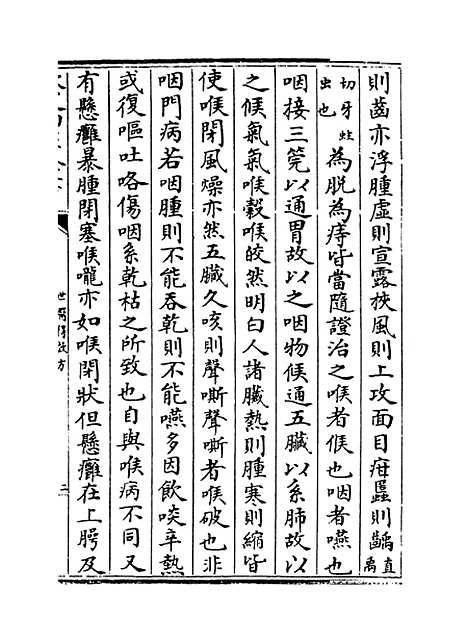 則齒亦浮腫虛則宣露挾風則上攻面目疳䘌則齲直禹
切牙蛀虫也為脫為痔皆當隨證治之喉者候也咽者嚥也
咽接三筦以通胃故以之咽物候通五臟以系肺故以
之候氣氣喉穀喉皎然明白人諸臟熱則腫寒則縮皆
使喉閉風燥亦然五臟久咳則聲嘶聲嘶者喉破也非
咽門病若咽腫則不能吞乾則不能嚥多因飲啖辛熱
或復嘔吐咯傷咽系乾枯之所致也自與喉病不同又
有懸癰暴腫閉塞喉嚨亦如喉閉狀但懸癰在上腭及
世醫得效方
三